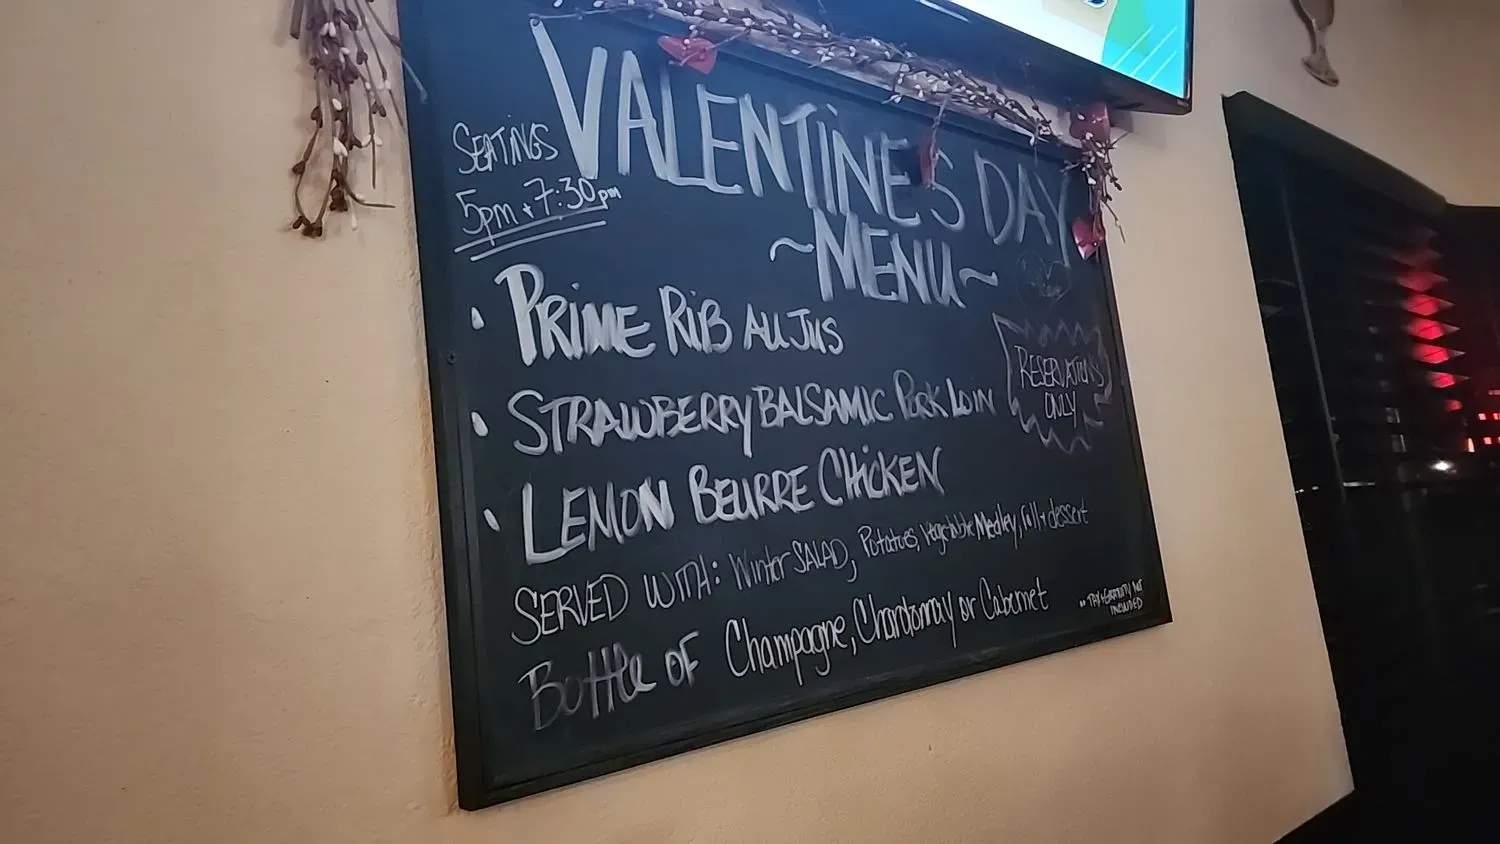 VALENTINE'S DAY
~MENU~
SEATINGS
5pm + 7:30pm
• PRIME RIB AU JUS
• STRAWBERRY BALSAMIC PORK LOIN
• LEMON BEURRE CHICKEN
RESERVATIONS
ONLY
SERVED WITH: Winter SALAD, Potatoes, Vegetable Medley, roll + dessert
Bottle OF Champagne, Chardonnay or Cabernet
** TAX + GRATUITY NOT
INCLUDED